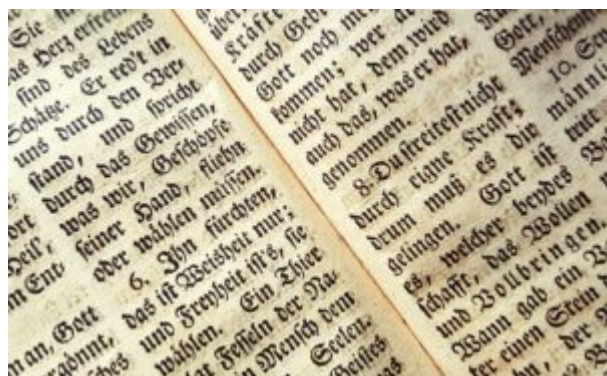 Sie
das Herz erfreu
sind des Lebens
Schätze. Er red't in
uns durch den Ver-
stand, und spricht
durch das Gewissen,
was wir, Geschöpfe
seiner Hand, fliehn
oder wählen müssen.
6. Ihn fürchten,
das ist Weisheit nur;
und Freyheit ist's, sie
wählen. Ein Thier
Fesseln der Na-
Mensch dem
Seelen.
Geistes
was
ort
Heil,
m Ent-
n an, Gott
ergönnt,
sches
über
Kräfte
durch Gebe
Gott noch me
kommen; wer de
nicht hat, dem wird
auch das, was er hat,
genommen.
8. Du streitest nicht
durch eigne Kraft;
drum muß es dir
gelingen. Gott ist
es, welcher beydes
schafft, das Wollen
und Vollbringen.
Wann gab ein V
ter einen Stein
der
Gott,
Menschen
10.
männli
tritt